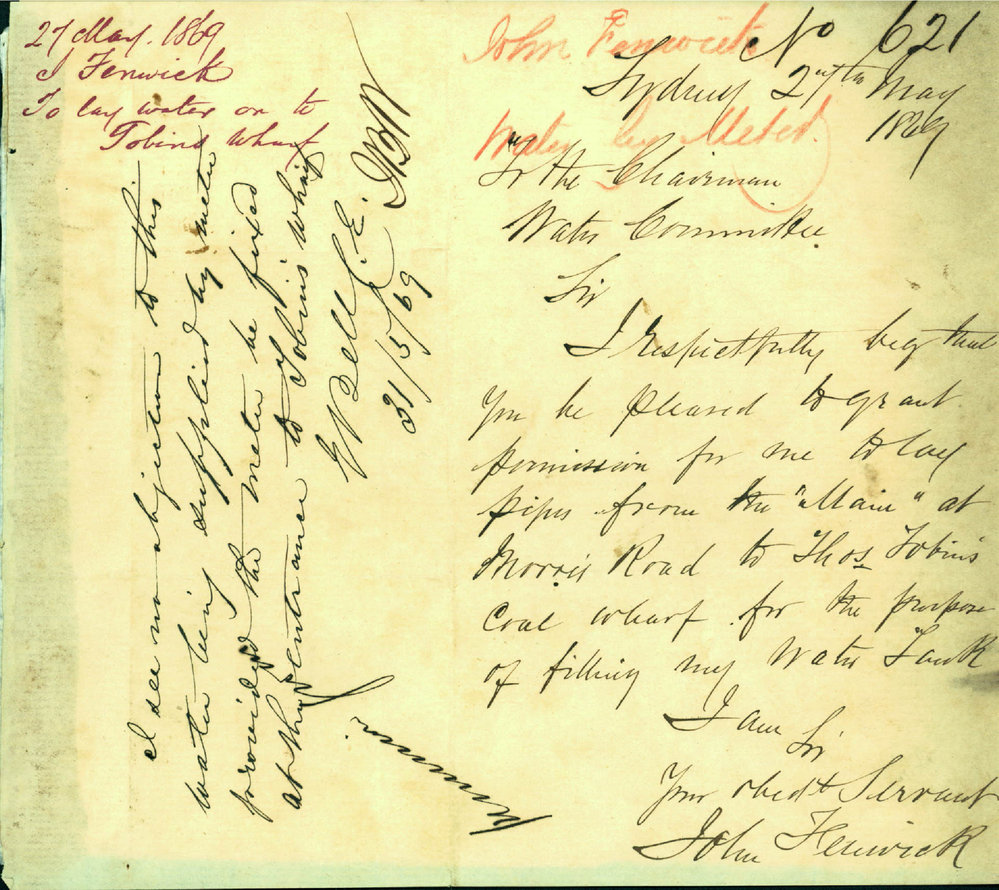 27 May. 1869
J Fenwick
To lay water on to
Tobins Wharf
John Fenwick
No 621
Sydney 27th May
1869
Water by Meter.
To the Chairman
Water Committee
Sir
I respectfully beg that
you be pleased to grant
permission for me to lay
pipes from the "Main" at
Morris Road to Thos Tobin's
Coal wharf for the purpose
of filling my Water Tank
I am Sir
Your obedt Servant
John Fenwick
I see no objection to this
water being supplied by meter
provided the meter be fixed
at the entrance to Tobin's Wharf
Bell C.E.
31/5/69